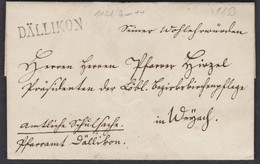 DÄLLIKON
Seiner Wohlehrwürden
Herren Herren Pfarrer Hirzel
Präsidenten der Löbl. Bezirkskirchenpflege
in Weÿach.
Amtliche Schulsache.
Pfarramt Dällikon.